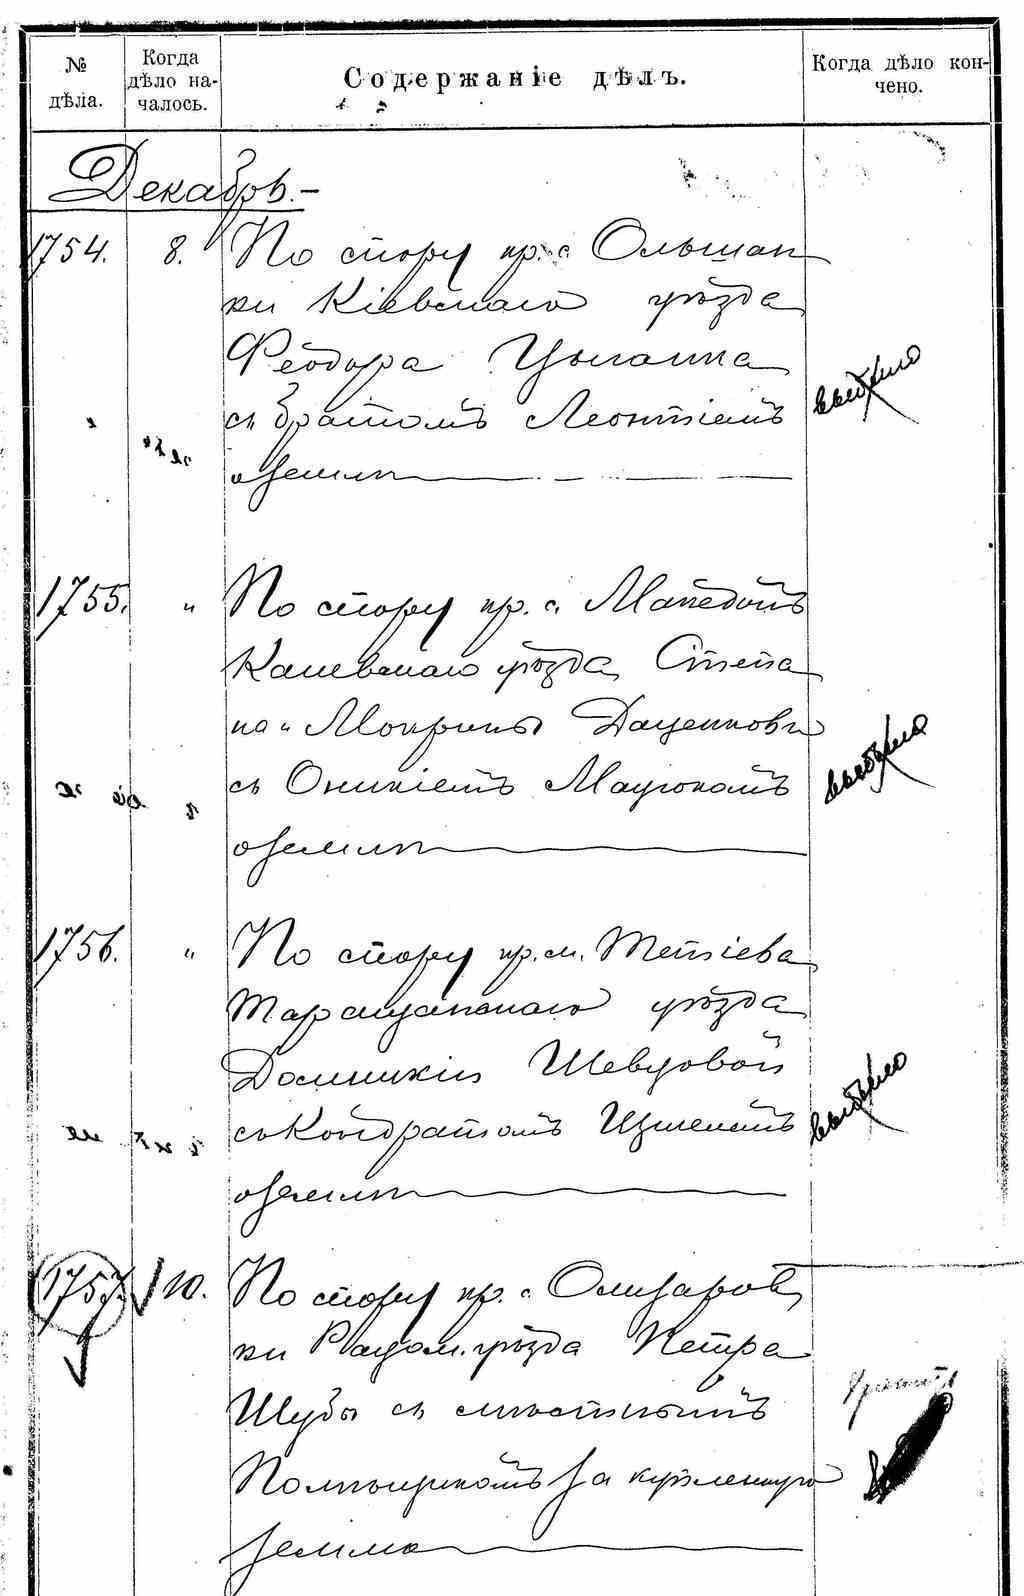 № дѣла.
Когда дѣло на-
чалось.
Содержаніе дѣлъ.
Когда дѣло кон-
чено.
Декабрь.-
1754. 8. По спору кр. с. Ольшан
ки Кіевскаго уѣзда
Ѳеодора Цыганка
съ братомъ Леонтіемъ
о землѣ
выбыло
1755. " По спору кр. с. Македонъ
Каневскаго уѣзда Степа
на и Мокрины Даценковъ
съ Оникіемъ Мацюкомъ
о землѣ
выбыло
1756. " По спору кр. м. Тетіева
Таращанскаго уѣзда
Домникіи Шевцовой
съ Кондратомъ
о землѣ
выбыло
1757. 10. По спору кр. с. Олизаров
ки Радом. уѣзда Петра
Шубы съ мѣстнымъ
Помѣщикомъ за купленную
землю